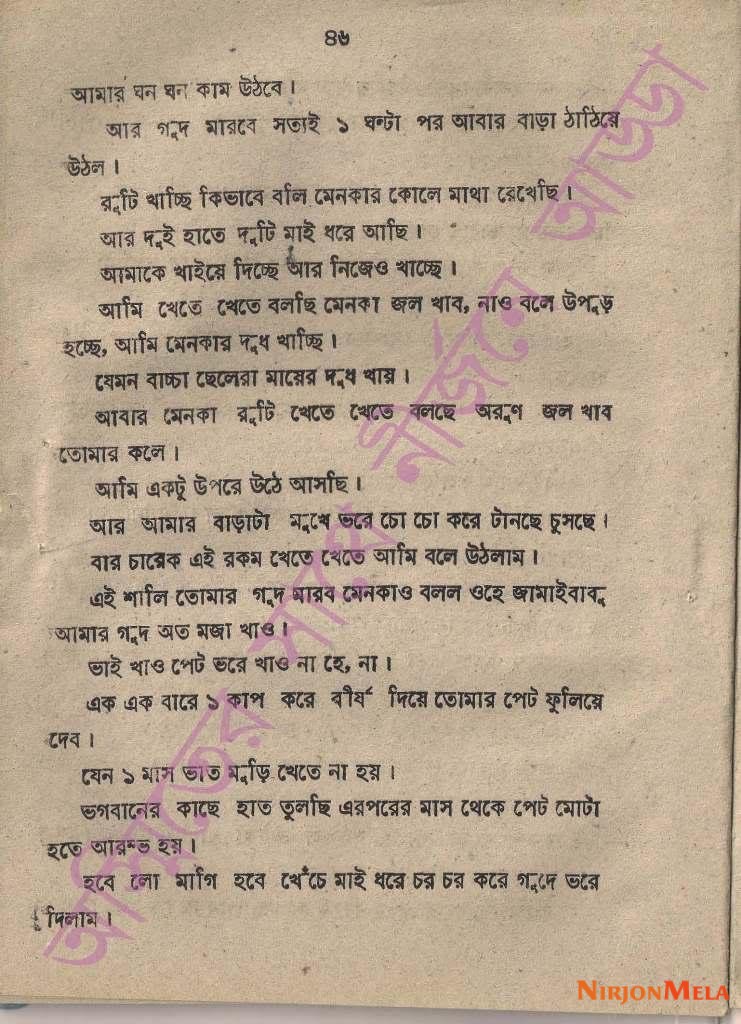 ৪৬
আমার ঘন ঘন কাম উঠবে।
আর গুদ মারবে সত্যই ১ ঘণ্টা পর আবার বাড়া ঠাঠিয়ে
উঠল।
রুটি খাচ্ছি কিভাবে বলি মেনকার কোলে মাথা রেখেছি।
আর দুই হাতে দুটি মাই ধরে আছি।
আমাকে খাইয়ে দিচ্ছে আর নিজেও খাচ্ছে।
আমি খেতে খেতে বলছি মেনকা জল খাব, নাও বলে উপুড়
হচ্ছে, আমি মেনকার দুধ খাচ্ছি।
যেমন বাচ্চা ছেলেরা মায়ের দুধ খায়।
আবার মেনকা রুটি খেতে খেতে বলছে অরুণ জল খাব
তোমার কলে।
আমি একটু উপরে উঠে আসছি।
আর আমার বাড়াটা মুখে ভরে চো চো করে টানছে চুসছে।
বার চারেক এই রকম খেতে খেতে আমি বলে উঠলাম।
এই শালি তোমার গুদ মারব মেনকাও বলল ওহে জামাইবাবু
আমার গুদ অত মজা খাও।
ভাই খাও পেট ভরে খাও না হে, না।
এক এক বারে ১ কাপ করে বীর্য দিয়ে তোমার পেট ফুলিয়ে
দেব।
যেন ১ মাস ভাত মুড়ি খেতে না হয়।
ভগবানের কাছে হাত তুলছি এরপরের মাস থেকে পেট মোটা
হতে আরম্ভ হয়।
হবে লো মাগি হবে খেঁচে মাই ধরে চর চর করে গুদে ভরে
দিলাম।
অমিতের সাথে নীর্জনে আড্ডা
NIRJONMELA